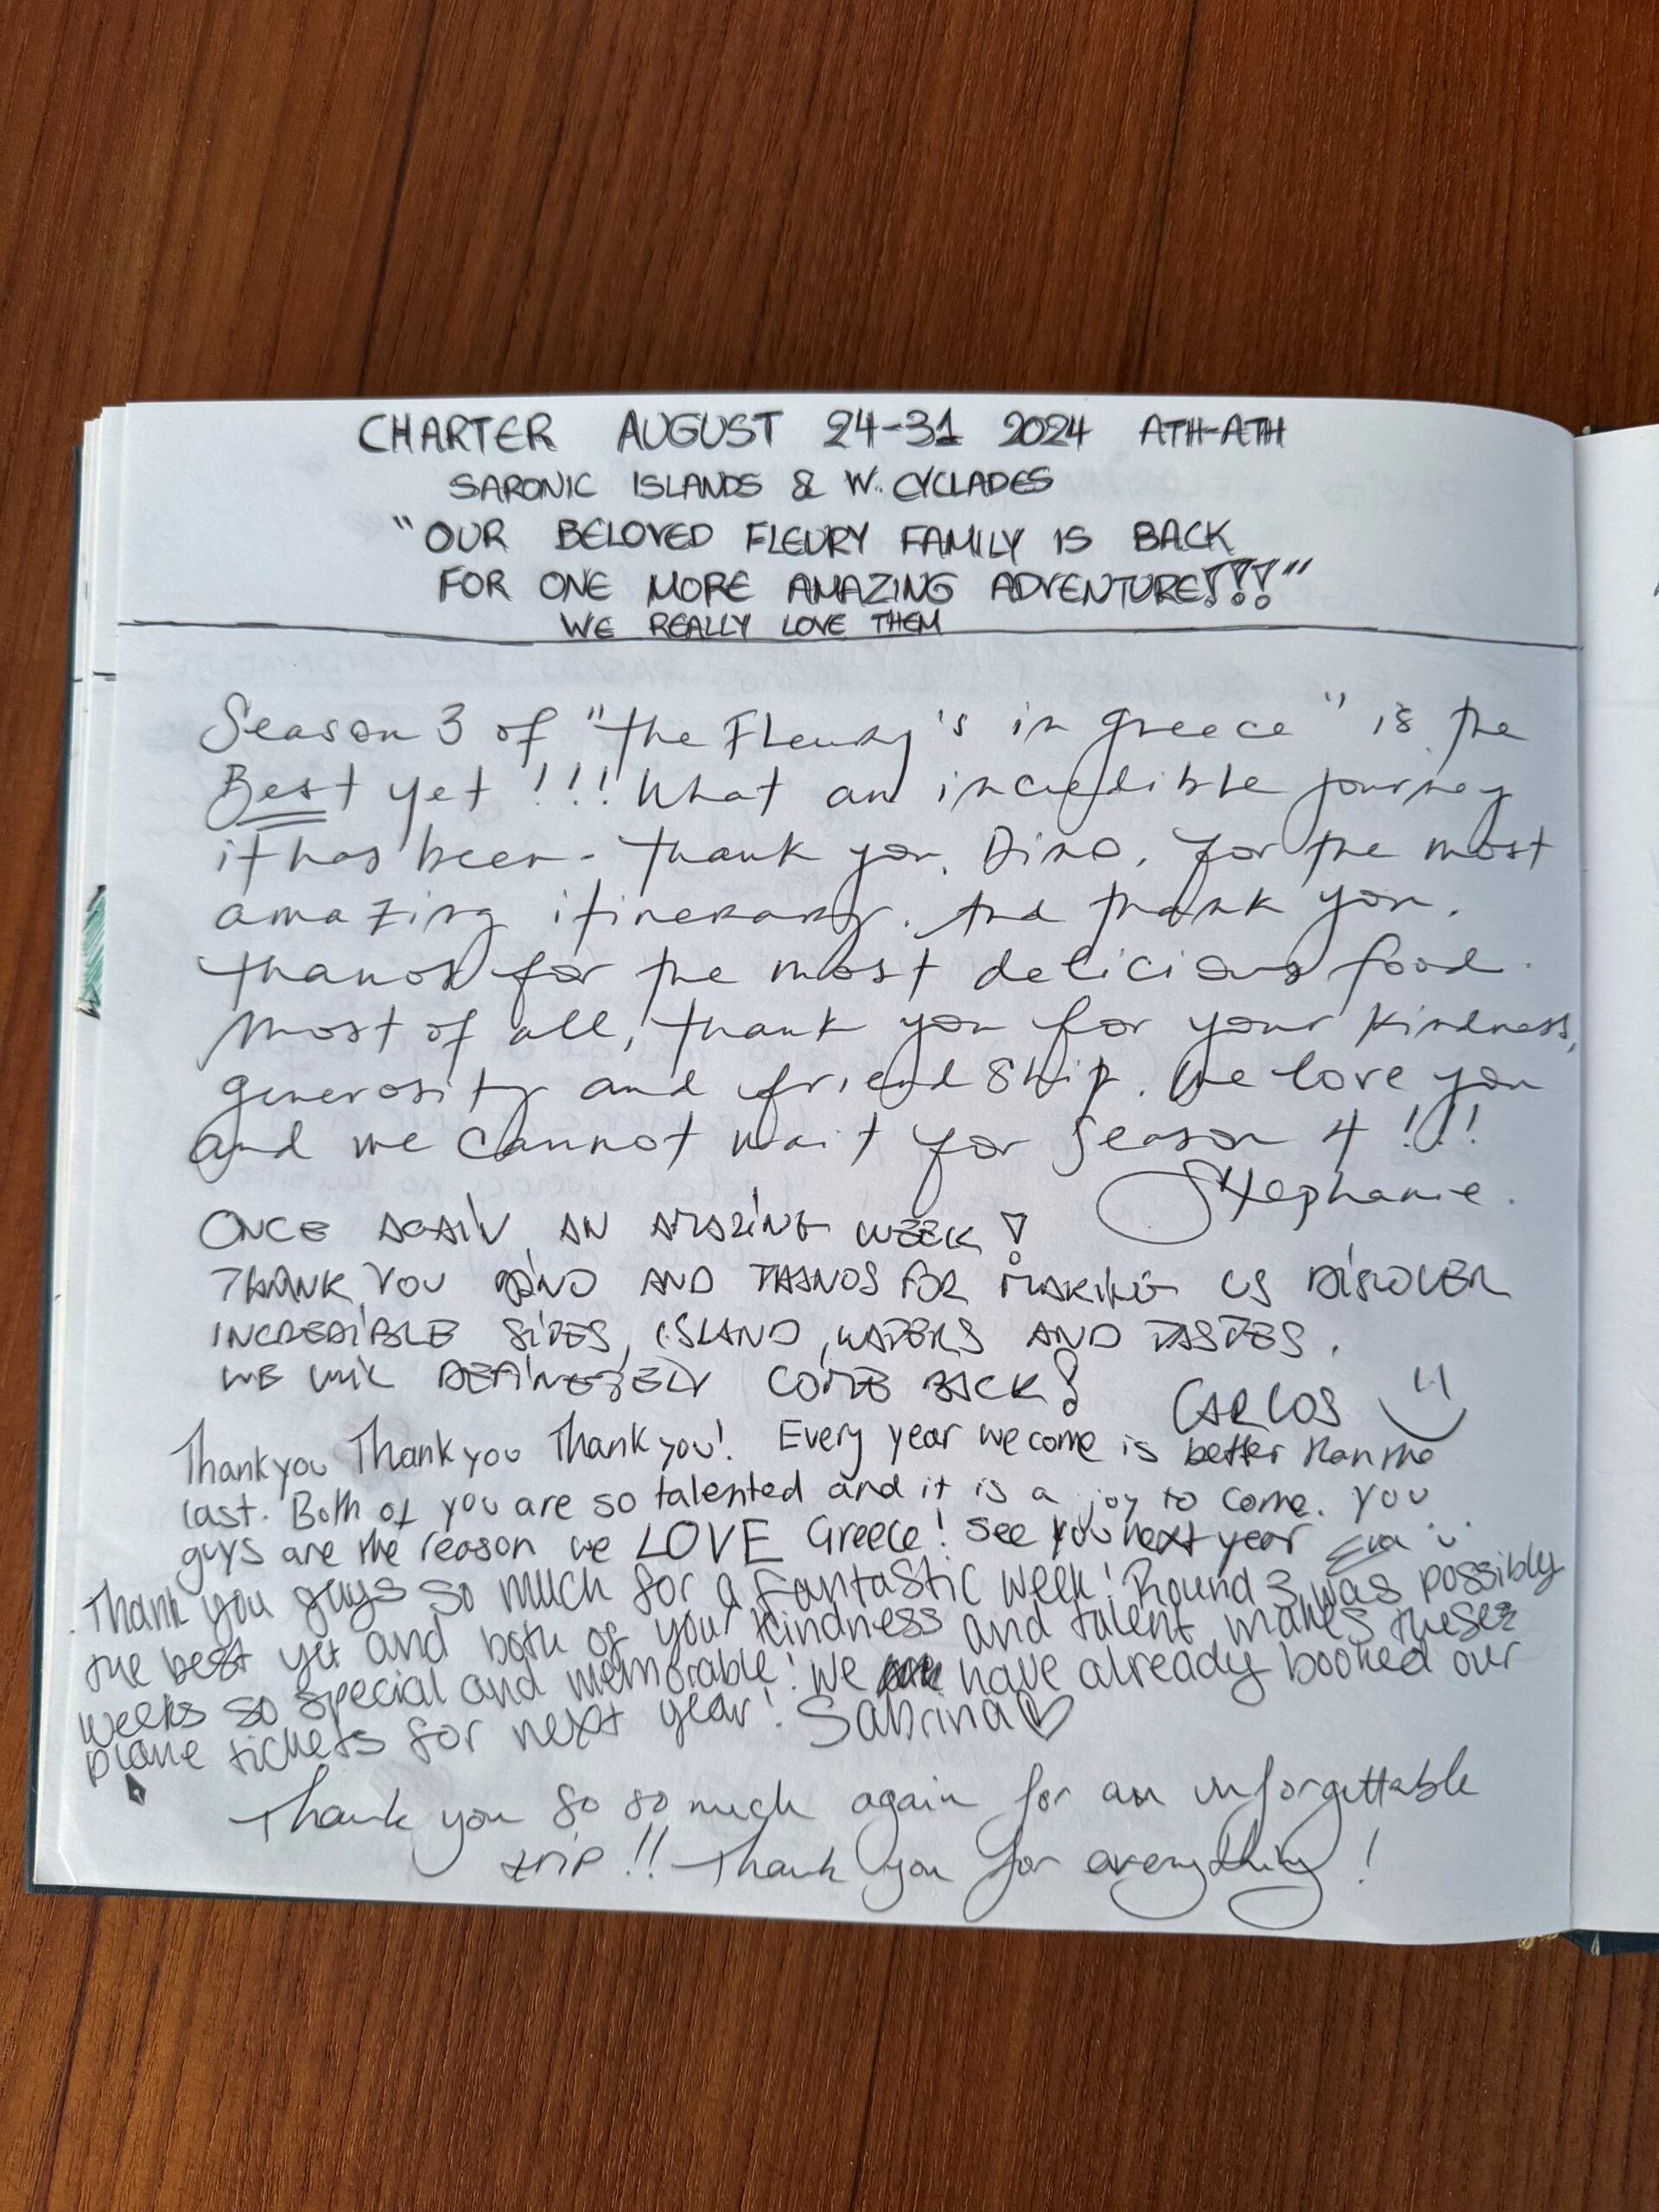 CHARTER AUGUST 24-31 2024 ATH-ATH
SARONIC ISLANDS & W. CYCLADES
"OUR BELOVED FLEURY FAMILY IS BACK
FOR ONE MORE AMAZING ADVENTURE!!!"
WE REALLY LOVE THEM
Season 3 of "the Fleury's in greece" is the
Best yet!!! What an incredible journey
it has been - thank you, Dino, for the most
amazing itinerary. And thank you,
thanos for the most delicious food.
Most of all, thank you for your kindness,
generosity and friendship. We love you
and we cannot wait for Season 4!!!
Stephanie.
ONCE AGAIN AN AMAZING WEEK!
THANK YOU DINO AND THANOS FOR MAKING US DISCOVER
INCREDIBLE SITES, ISLAND, WATERS AND TASTES.
WE WILL DEFINETELY COME BACK!
CARLOS
Thank you Thank you Thank you! Every year we come is better than the
last. Both of you are so talented and it is a joy to come. You
guys are the reason we LOVE Greece! See you next year Eva
Thank you guys so much for a fantastic week! Round 3 was possibly
the best yet and both of your kindness and talent makes these
weeks so special and memorable! We have already booked our
plane tickets for next year! Sabrina
Thank you so so much again for an unforgettable
trip!! Thank you for everything!